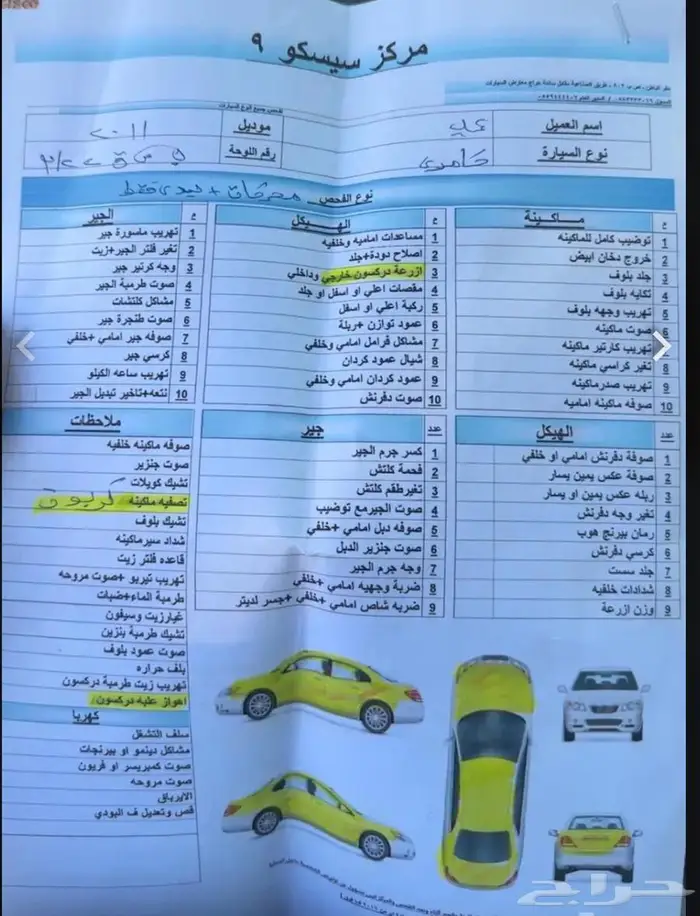 مركز سيسكو ٩
فحص جميع انواع السيارات
اسم العميل علي موديل ٢٠١١
نوع السيارة كامري رقم اللوحة
نوع الفحص محركات + بودي فقط
ع ماكينة
1 توضيب كامل للماكينه
2 خروج دخان ابيض
3 جلد بلوف
4 تكايه بلوف
5 تهريب وجهه بلوف
6 صوت ماكينه
7 تهريب كارتير ماكينه
8 تغير كراسي ماكينه
9 تهريب صدرماكينه
10 صوفه ماكينه اماميه
ع الهيكل
1 مساعدات اماميه وخلفيه
2 اصلاح دودة+جلد
3 ازرعة دركسون خارجي وداخلي
4 مقصات اعلي او اسفل او جلد
5 ركبة اعلي او اسفل
6 عمود توازن +ربلة
7 مشاكل فرامل امامي وخلفي
8 شيال عمود كردان
9 عمود كردان امامي وخلفي
10 صوت دفرنش
ع الجير
1 تهريب ماسورة جير
2 تغير فلتر الجير+زيت
3 وجه كرتير جير
4 صوت طرمبة الجير
5 مشاكل كلتشات
6 صوت طنجرة جير
7 صوفه جير امامي +خلفي
8 كرسي جير
9 تهريب ساعه الكيلو
10 نتعه+تاخير تبديل الجير
عدد الهيكل
1 صوفة دفرنش امامي او خلفي
2 صوفة عكس يمين يسار
3 ربله عكس يمين او يسار
4 تغير وجه دفرنش
5 رمان بيرنج هوب
6 كرسي دفرنش
7 جلد سست
8 شدادات خلفيه
9 وزن ازرعة
عدد جير
1 كسر جرم الجير
2 فحمة كلتش
3 تغيرطقم كلتش
4 صوت الجيرمع توضيب
5 صوفه دبل امامي +خلفي
6 صوت جنزير الدبل
7 وجه جرم الجير
8 ضربة وجهيه امامي +خلفي
9 ضربه شاص امامي +خلفي +جسر لديتر
ملاحظات
صوفه ماكينه خلفيه
صوت جنزير
تشيك كويلات
تصفيه ماكينه / كربون
تشيك بلوف
شداد سيرماكينه
قاعده فلتر زيت
تهريب تيربو +صوت مروحه
طرمبة الماء+ضبات
غيارزيت وسيفون
تشيك طرمبة بنزين
صوت عمود بلوف
بلف حراره
تهريب زيت طرمبة دركسون
اهواز علبه دركسون/
كهربا
سلف التشغل
مشاكل دينمو او بيرنجات
صوت كمبريسر او فريون
صوت مروحه
الايرباق
قص وتعديل ف البودي
حراج